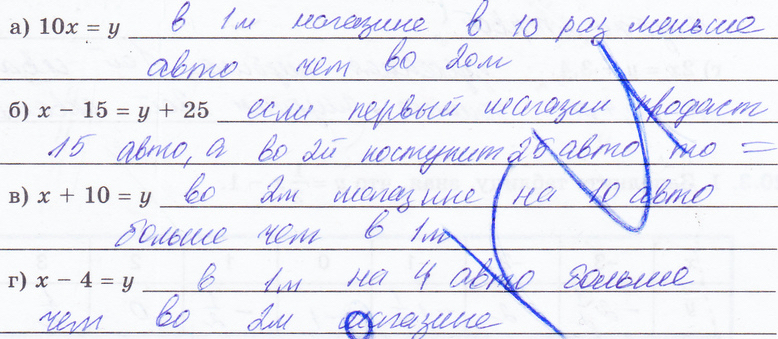 а) 10x = y в 1м магазине в 10 раз меньше
авто чем во 2ом
б) x − 15 = y + 25 если первый магазин продаст
15 авто, а во 2й поступит 25 авто то =
в) x + 10 = y во 2м магазине на 10 авто
больше чем в 1м
г) x − 4 = y в 1м на 4 авто больше
чем во 2м магазине